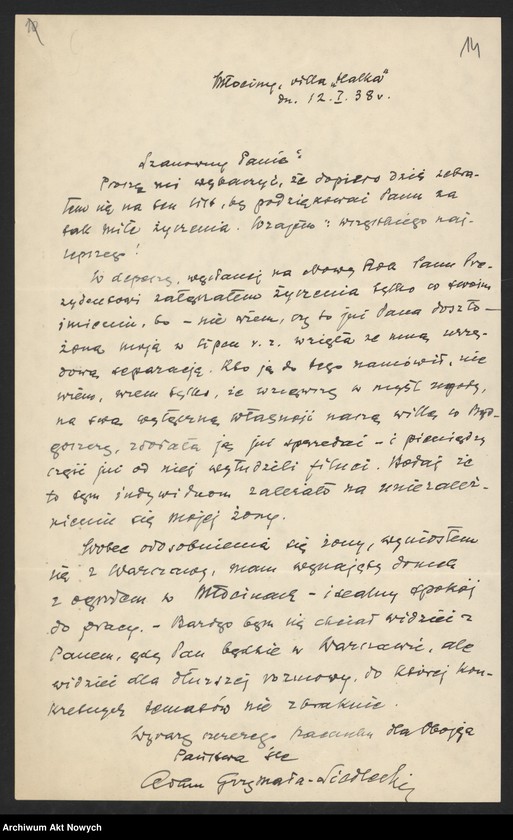 14
Młociny, villa „Halka"
dn. 12. I. 38 r.
Szanowny Panie:
Proszę mi wybaczyć, że dopiero dziś zebra-
łem się na ten list, by podziękować Panu za
tak miłe życzenia. Wzajem: wszystkiego naj-
lepszego!
W depeszy, wysłanej na Nowy Rok Panu Pre-
zydentowi załączałem życzenia tylko co swoim
imieniu, bo – nie wiem, czy to już Pana doszło –
żona moja w lipcu r. z. wzięła ze mną urzę-
dową separację. Kto ją do tego namówił, nie
wiem, wiem tylko, że wziąwszy w myśl ugody,
na swą wyłączną własność naszą willę w Byd-
goszczy, zdołała ją już sprzedać – i pieniędzy
część już od niej wyłudzili filuci. Bodaj że
to tym indywiduom zależało na uniezależ-
nieniu się mojej żony.
Wobec odosobnienia się żony, wyniosłem
się z Warszawy, mam wynajęty domek
z ogrodem w Młocinach – idealny spokój
do pracy. – Bardzo bym się chciał widzieć z
Panem, gdy Pan będzie w Warszawie, ale
widzieć dla dłuższej rozmowy, do której kon-
kretnych tematów nie zbraknie.
Wyrazy szczerego szacunku dla Obojga
Państwa ślę
Adam Grzymała-Siedlecki
Archiwum Akt Nowych